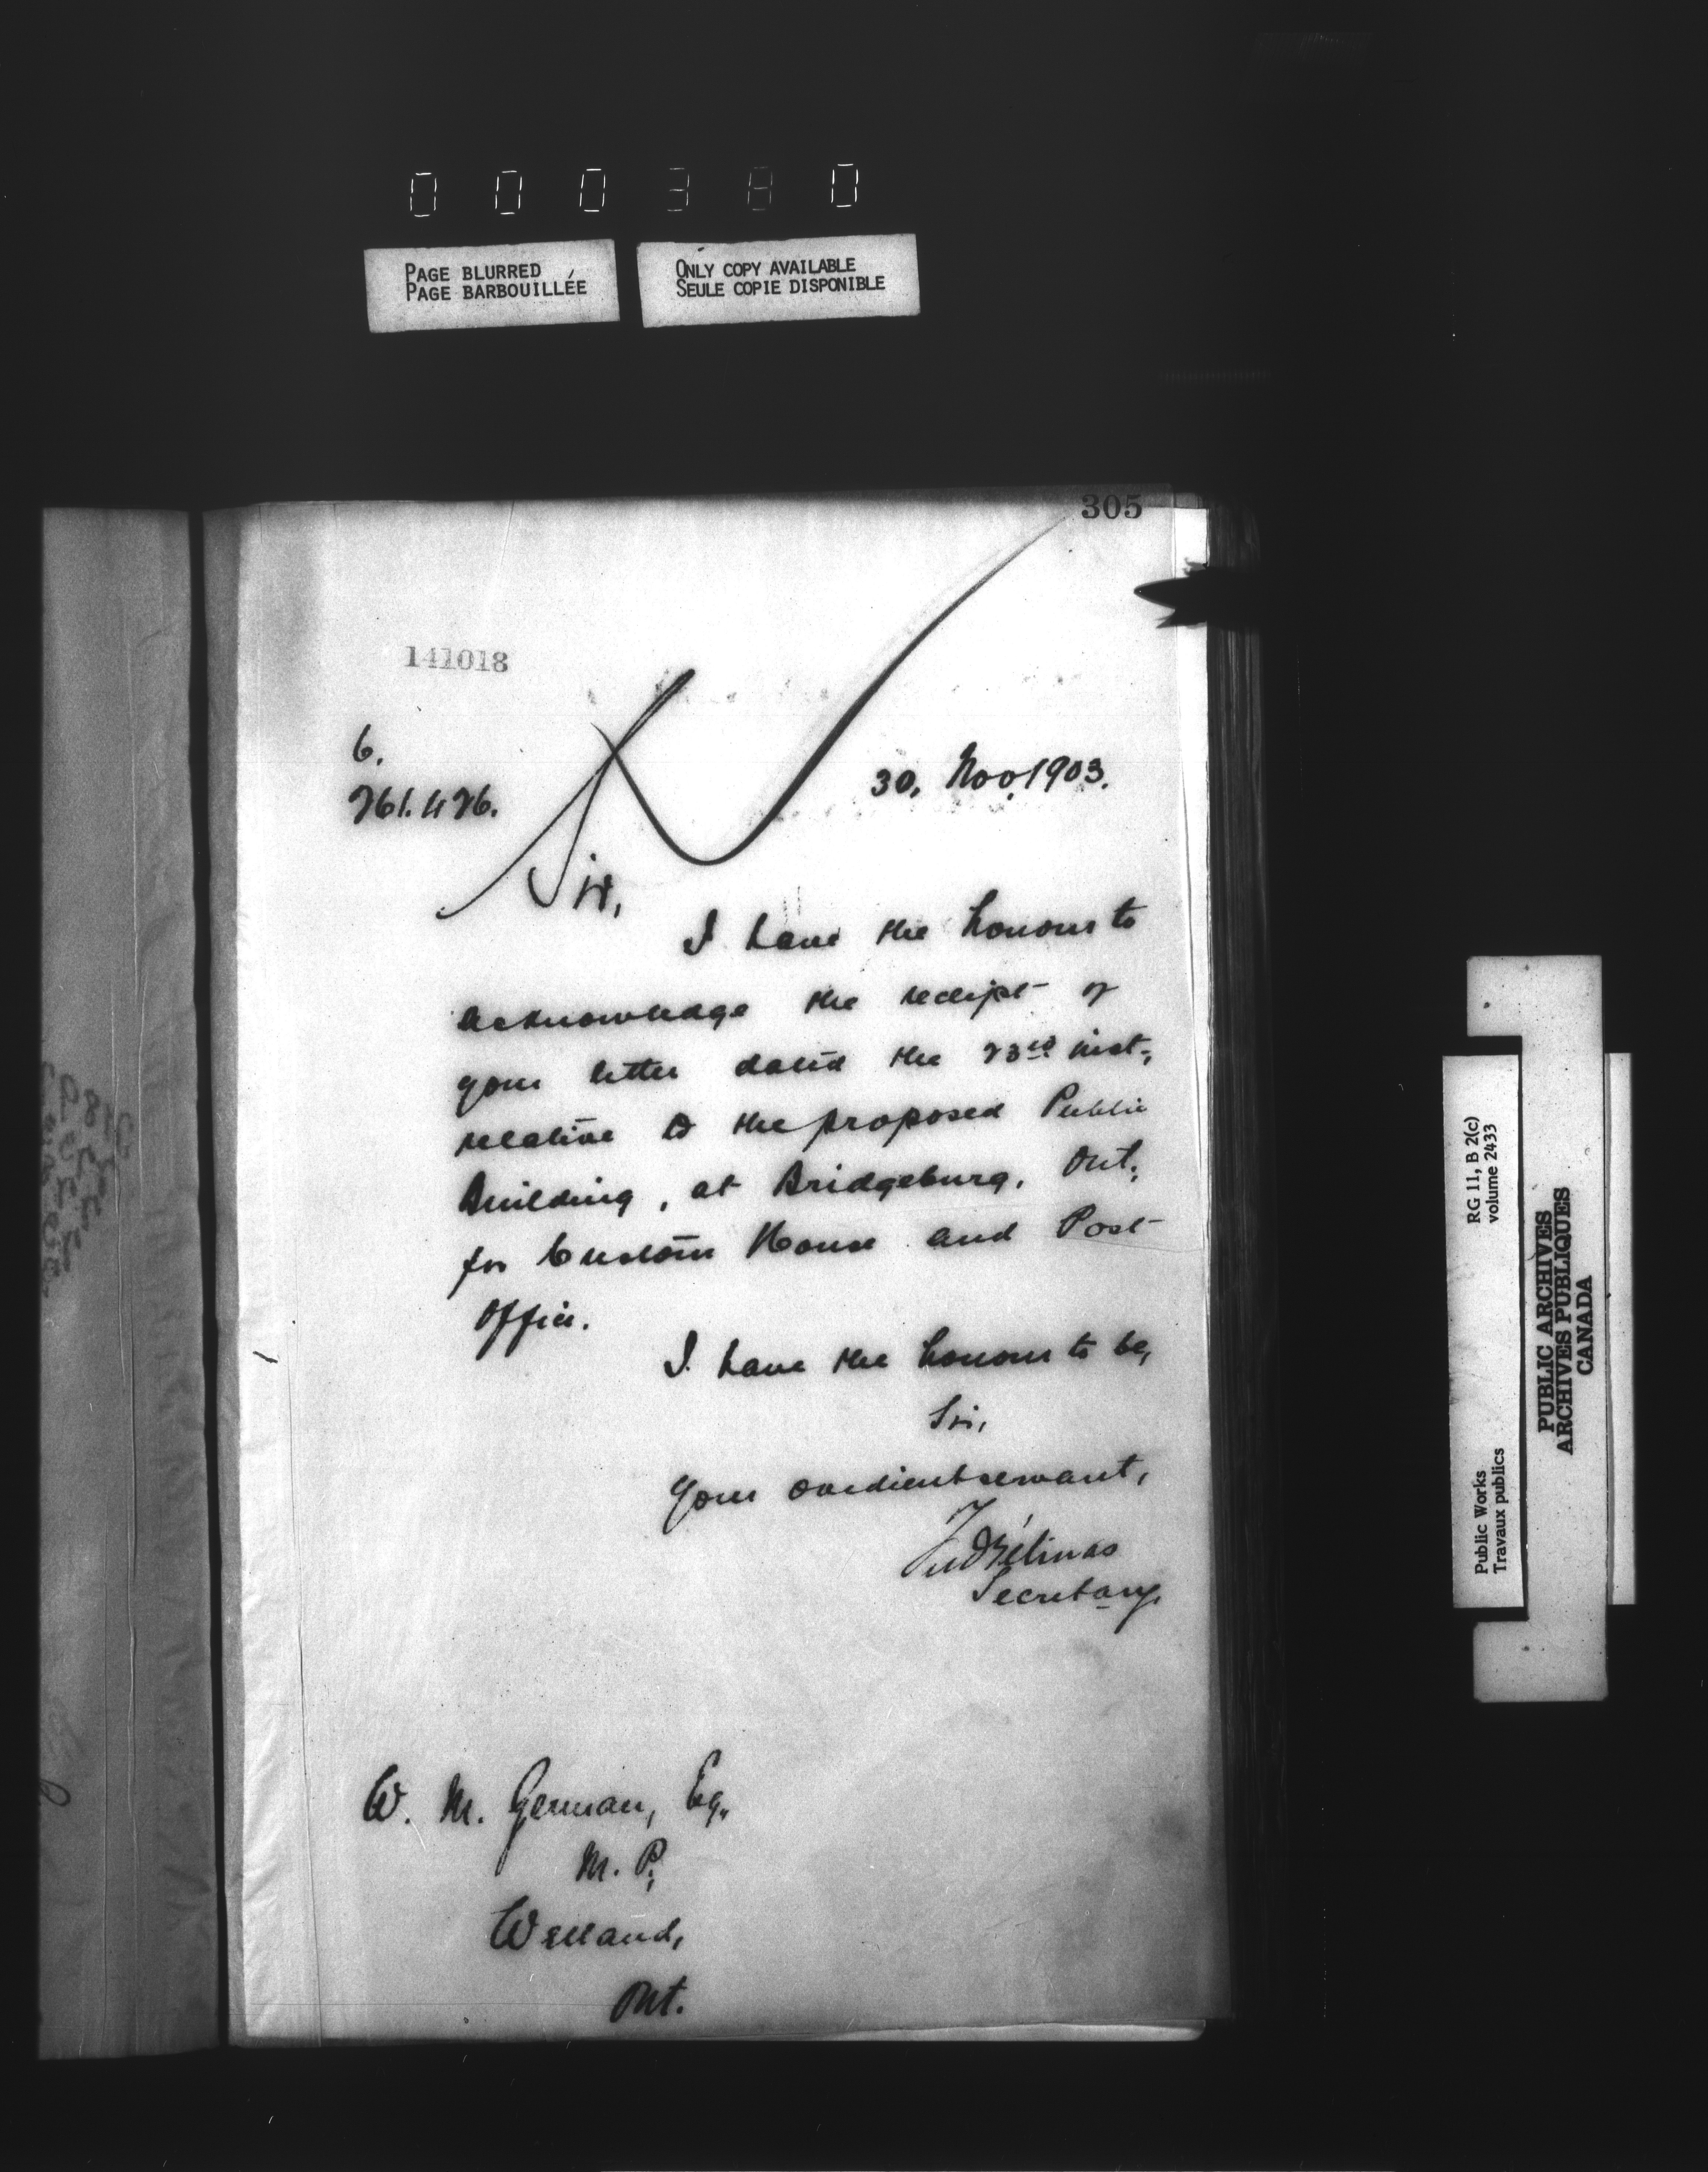 000380
PAGE BLURRED
PAGE BARBOUILLÉE
ONLY COPY AVAILABLE
SEULE COPIE DISPONIBLE
305
141018
6.
261.426.
30, Nov. 1903.
Sir,
I have the honour to
acknowledge the receipt of
your letter dated the 23rd inst.,
relative to the proposed Public
Building, at Bridgeburg, Ont.,
for Custom House and Post
Office.
I have the honour to be,
Sir,
Your obedient servant,
Fred Gélinas
Secretary.
W. M. German, Esq.,
M. P.,
Welland,
Ont.
RG 11, B 2(c)
volume 2433
Public Works
Travaux publics
PUBLIC ARCHIVES
ARCHIVES PUBLIQUES
CANADA